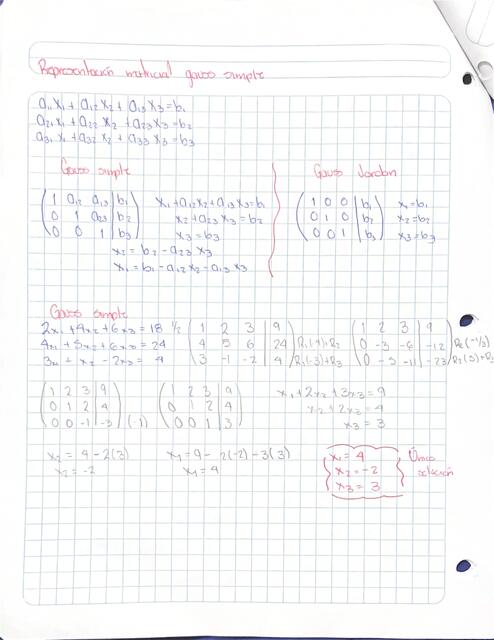 Representación matricial gauss simple
a₁₁x₁ + a₁₂x₂ + a₁₃x₃ = b₁
a₂₁x₁ + a₂₂x₂ + a₂₃x₃ = b₂
a₃₁x₁ + a₃₂x₂ + a₃₃x₃ = b₃
Gauss simple
1 a₁₂ a₁₃ | b₁
0 1 a₂₃ | b₂
0 0 1 | b₃
x₁ + a₁₂x₂ + a₁₃x₃ = b₁
x₂ + a₂₃x₃ = b₂
x₃ = b₃
x₂ = b₂ - a₂₃x₃
x₁ = b₁ - a₁₂x₂ - a₁₃x₃
Gauss Jordan
1 0 0 | b₁ x₁ = b₁
0 1 0 | b₂ x₂ = b₂
0 0 1 | b₃ x₃ = b₃
Gauss simple
2x₁ + 4x₂ + 6x₃ = 18 1/2
4x₁ + 5x₂ + 6x₃ = 24
3x₁ + x₂ - 2x₃ = 4
1 2 3 | 9
4 5 6 | 24 R₁(-4)+R₂
3 -1 -2 | 4 R₁(-3)+R₃
1 2 3 | 9
0 -3 -6 | -12 R₂(-1/3)
0 -5 -11 | -23 R₂(5)+R₃
1 2 3 | 9
0 1 2 | 4
0 0 -1 | -3 (-1)
1 2 3 | 9
0 1 2 | 4
0 0 1 | 3
x₁ + 2x₂ + 3x₃ = 9
x₂ + 2x₃ = 4
x₃ = 3
x₂ = 4 - 2(3)
x₂ = -2
x₁ = 9 - 2(-2) - 3(3)
x₁ = 4
x₁ = 4
x₂ = -2
x₃ = 3
Único
solución